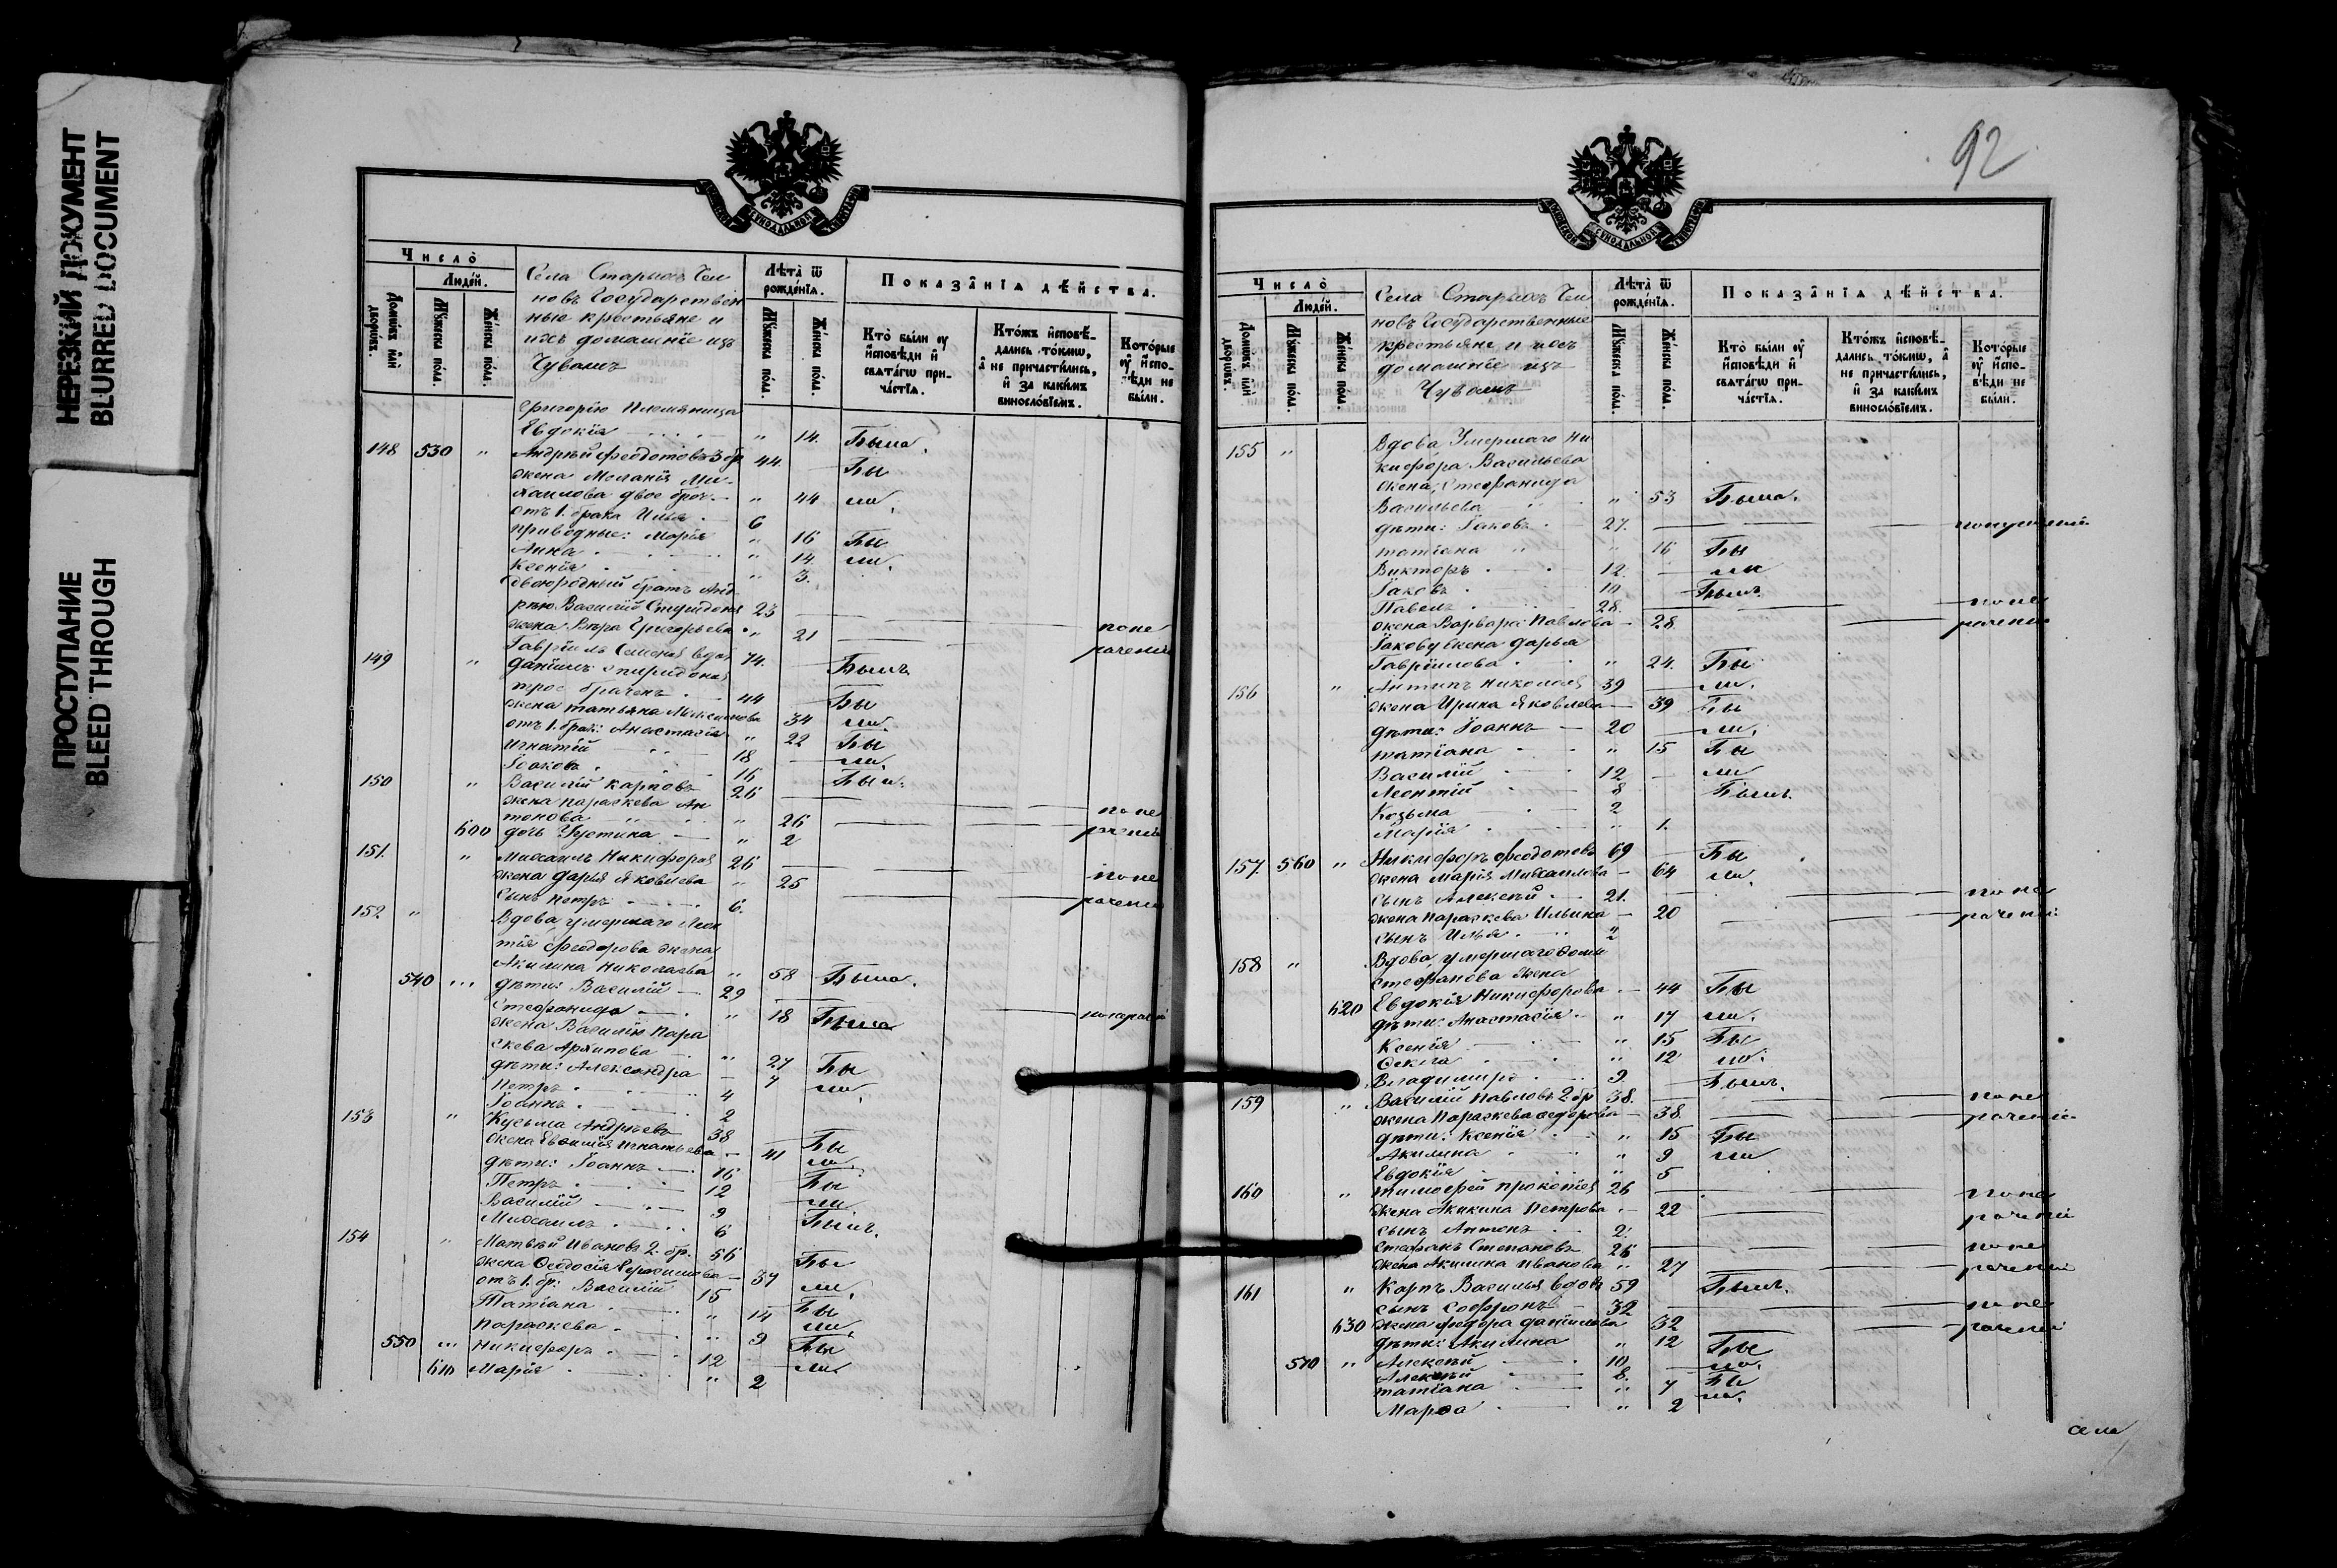 НЕРЕЗКИЙ ДОКУМЕНТ
BLURRED DOCUMENT
ПРОСТУПАНИЕ
BLEED THROUGH
МОСКОВСКОЙ СѴНОДАЛЬНОЙ ТИПОГРАФІИ
Число̀
Люде́й.
Домѡ́въ и҆лѝ дворѡ́въ.
Мꙋ́жеска по́ла.
Же́нска по́ла.
Села Старыхъ Чи
новъ Государствен
ные крестьяне и
ихъ домашніе изъ
Чувашъ
Лѣта̀ ѿ рожде́нїѧ.
Мꙋ́жеска по́ла.
Же́нска по́ла.
Показа̂нїѧ дѣ́йства.
Кто̀ бы́ли ᲂу҆ и҆сповѣ́ди и҆ свѧта́гѡ прича́стїѧ.
Кто́жъ и҆сповѣ́дались то́кмѡ, а҆ не причасти́лись, и҆ за каки́мъ винослѡ́вїемъ.
Кото́рые ᲂу҆ и҆сповѣ́ди не бы́ли.
Григорію племянница
Евдокія " 14. Была.
148 530 " Андрей Феодотовъ 3 бр 44. Бы
жена Меланія Ми-
хаилова двое брач. " 44 ли.
отъ 1. брака Илья 6
приводные: Марія " 16 Бы
Анна " 14. ли.
Ксенія " 3.
двоюродный братъ Анд
рею Василій Спиридонов 23
жена Вѣра Григорьева " 21 по не раченію
149 " Гавріилъ Семенов вдов 74. Былъ
Даніилъ Спиридонов
трое браченъ 44 Бы
жена Татьяна Алексѣева 34 ли.
отъ 1. брак: Анастасія " 22 Бы
Игнатій 18 ли.
Іаковъ 16 Былъ.
150 " Василій Карповъ 26
жена Параскева Ан
тонова " 26 по не
600 дочь Устина " 2 раченію
151. " Михаилъ Никифоров 26
жена Дарья Яковлева " 25 по не
сынъ Петръ 6. раченію
152. " Вдова, умершаго Леон
тія Феодорова жена,
Акилина Николаева " 58 Была.
540 ... дѣти: Василій 29
Стефанида " 18 Была
жена Василію Пара
скева Архипова " 27 Бы
дѣти: Александра 7 ли.
Петръ 4
Іоаннъ 2
153 " Кузьма Андреевъ 38 Бы
жена Евфимія Игнатьева 41 ли.
дѣти: Іоаннъ 16 Бы
Петръ 12 ли
Василій 9 Былъ.
Михаилъ 6
154 " Матвѣй Ивановъ 2. бр. 56 Бы
жена Ѳеодосія 37 ли.
отъ 1. бр: Василій 15 Бы
Татіана " 14 ли.
Параскева " 9 Бы
550 ... Никифоръ 12 ли.
610 Марія " 2
92
МОСКОВСКОЙ СѴНОДАЛЬНОЙ ТИПОГРАФІИ
Число̀
Люде́й.
Домѡ́въ и҆лѝ дворѡ́въ.
Мꙋ́жеска по́ла.
Же́нска по́ла.
Села Старыхъ Чи
новъ Государственные
крестьяне и ихъ
домашніе изъ
Чувашъ
Лѣта̀ ѿ рожде́нїѧ.
Мꙋ́жеска по́ла.
Же́нска по́ла.
Показа̂нїѧ дѣ́йства.
Кто̀ бы́ли ᲂу҆ и҆сповѣ́ди и҆ свѧта́гѡ прича́стїѧ.
Кто́жъ и҆сповѣ́дались то́кмѡ, а҆ не причасти́лись, и҆ за каки́мъ винослѡ́вїемъ.
Кото́рые ᲂу҆ и҆сповѣ́ди не бы́ли.
155 " Вдова, Умершаго Ни
кифора Васильева
жена, Стефанида
Васильева " 53 Была.
дѣти: Іаковъ 27.
Татіана " 16 Бы
Викторъ 12. ли
Іаковъ 10 Былъ.
Павелъ 28. по не
жена Варвара Павлова 28. раченію
Іакову жена Дарья
Гавріилова " 24. Бы
156 " Антипъ Николаев 39 ли.
жена Ирина Яковлева 39 Бы
дѣти: Іоаннъ 20 ли.
Татіана " 15 Бы
Василій 12 ли
Леонтій 8 Былъ.
Козьма 2
Марія " 1.
157. 560 " Никифоръ Феодотовъ 69 Бы
жена Марія Михаилова 64 ли.
сынъ Алексѣй 21. по не
жена Параскева Ильина 20 раченію
сынъ Илья 2
158 " Вдова, умершаго
Стефанова жена
620 Евдокія Никифорова 44 Бы
дѣти: Анастасія " 17 ли.
Ксенія " 15 Бы
Ѳекла " 12 ла.
Владиміръ 9. Былъ.
159 " Василій Павловъ 2 бр 38. по не
жена Параскева Федорова 38. раченію
дѣти: Ксенія " 15 Бы
Акилина " 9 ли
Евдокія " 5
160 " Тимофей Прокопіев 26 по не
жена Акилина Петрова 22 раченію
сынъ Антонъ 2.
Стефанъ Степановъ 26 по не
жена Акилина Иванова " 27 раченію
161 " Карпъ Васильев вдов 59 Былъ.
сынъ Софронъ 32 по не
630 жена Федора Даніилова 32 раченію
дѣти: Акилина " 12 Бы
570 " Алексѣй 10. ла.
Алексѣй 8. Бы
Татіана " 7 ли.
Марѳа " 2